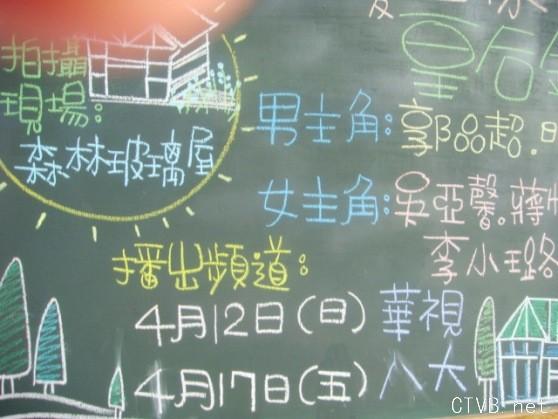 拍攝
現場:
森林玻璃屋
男主角:郭品超.
女主角:吳亞馨。蔣
李小璐
播出頻道:
4月12日(日)華視
4月17日(五)八大
CTVB.net